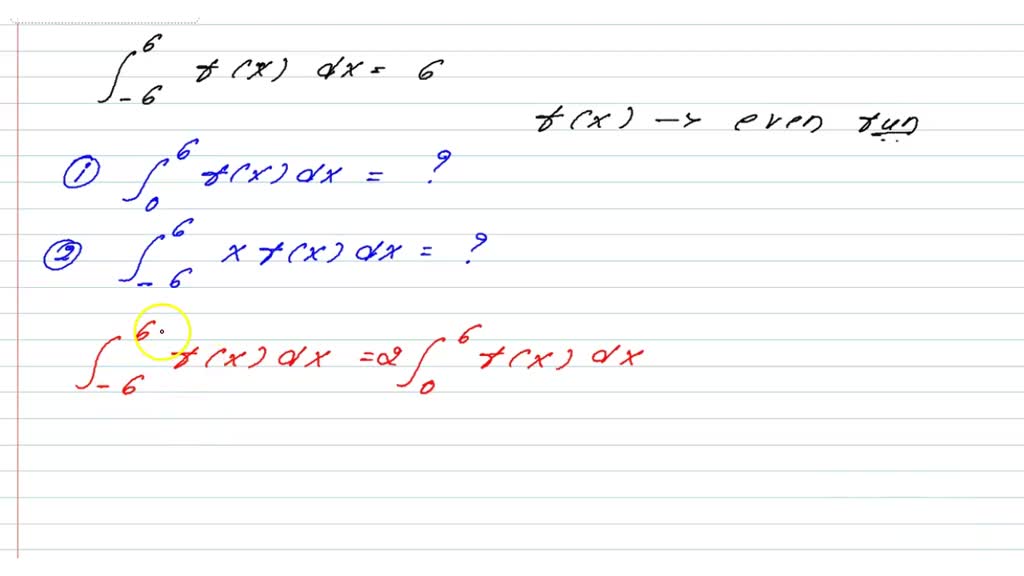 ∫_{-6}^{6} f(x) dx = 6
f(x) → even fun
① ∫_{0}^{6} f(x) dx = ?
② ∫_{-6}^{6} x f(x) dx = ?
∫_{-6}^{6} f(x) dx = 2 ∫_{0}^{6} f(x) dx